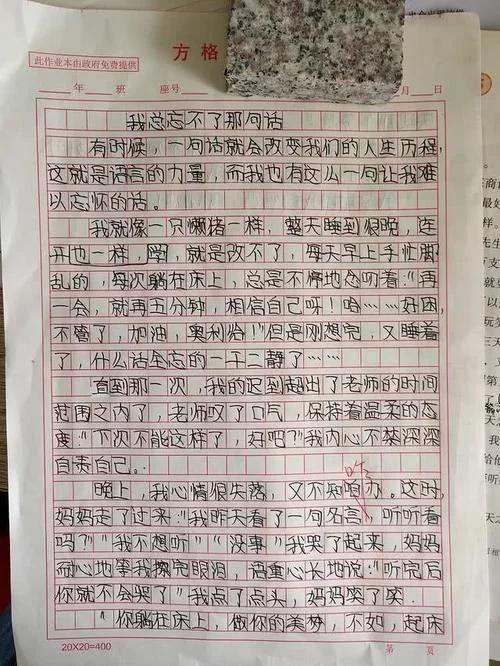 此作业本由政府免费提供
方格
年 班 座号 月 日
我总忘不了那句话
有时候，一句话就会改变我们的人生历程，
这就是语言的力量，而我也有这么一句让我难
以忘怀的话。
我就像一只懒猪一样，整天睡到很晚，连
开也一样，学，就是改不了，每天早上手忙脚
乱的，每次躺在床上，总是不停地念叨着：“再
一会，就再五分钟，相信自己呀！哈……好困，
不管了，加油，奥利给！”但是刚想完，又睡着
了，什么话全忘的一干二静了……
直到那一次，我的迟到超出了老师的时间
范围之内了，老师叹了口气，保持着温柔的态
度：“下次不能这样了，好吧？”我内心不禁深深
自责自己。
晚上，我心情很失落，又不知咋办。这时，
妈妈走了过来：“我昨天看了一句名言，听听看
吗？”“我不想听”“没事”我哭了起来，妈妈
耐心地等我擦完眼泪，语重心长地说：“听完后
你就不会哭了”我点了点头，妈妈笑了笑
“你躺在床上，做你的美梦，不如，起床
20X20=400
第 页